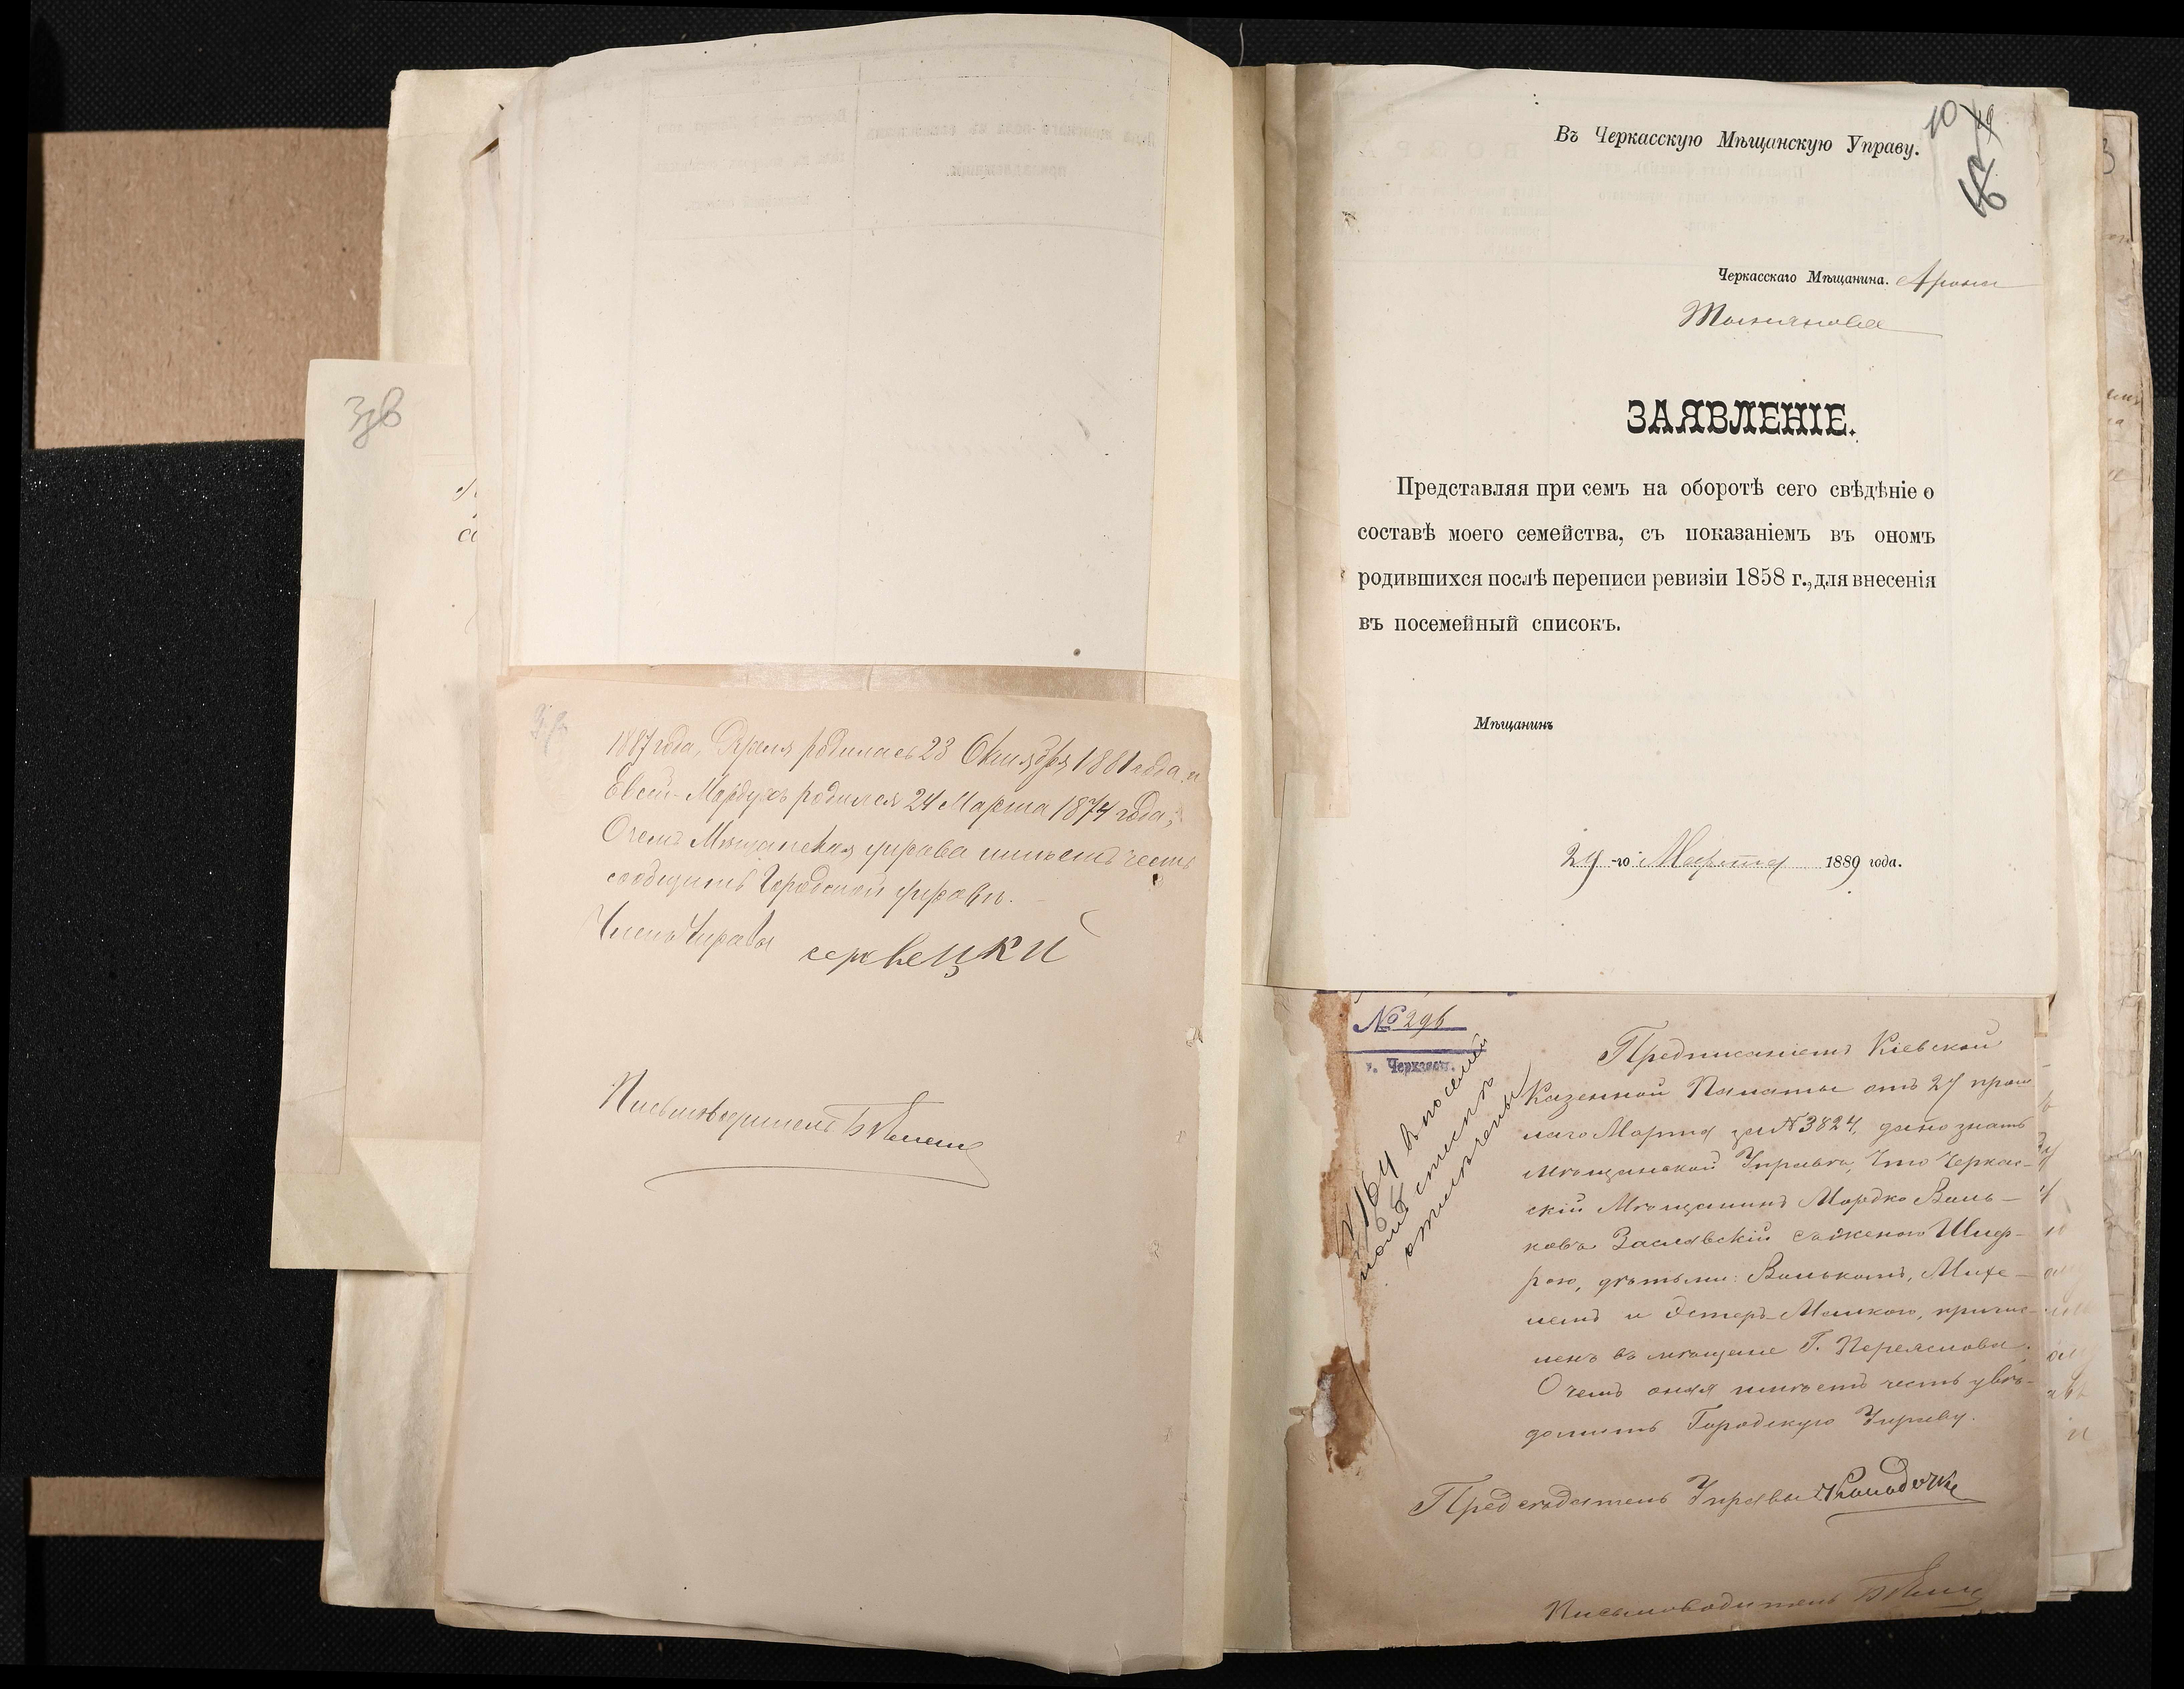 1887 года, родилась 23 Октября 1881 года и
Евсей-Мордухъ родился 24 Марта 1874 года;
О чемъ Мѣщанская управа имѣетъ честь
сообщить Городской управѣ.
Членъ Управы
Письмоводитель
Въ Черкасскую Мѣщанскую Управу.
10
Черкасскаго Мѣщанина. Арона
ЗАЯВЛЕНІЕ.
Представляя при семъ на оборотѣ сего свѣдѣніе о
составѣ моего семейства, съ показаніемъ въ ономъ
родившихся послѣ переписи ревизіи 1858 г., для внесенія
въ посемейный списокъ.
Мѣщанинъ
29 -го Марта 1889 года.
№ 296
г. Черкассы.
Предписаніемъ Кіевской
Казенной Палаты отъ 27 прош
лаго Марта за № 3824, дано знать
Мѣщанской Управѣ, что Черкас-
скій Мѣщанинъ Мордко Вель-
ковъ Заславскій съ женою Шиф-
рою, дѣтьми: Велькомъ, Михе-
лемъ и Эстеръ-Малкою, причис-
ленъ въ мѣщане Г. Переяслова.
О чемъ оная имѣетъ честь увѣ-
домить Городскую Управу.
Предсѣдатель Управы
Письмоводитель